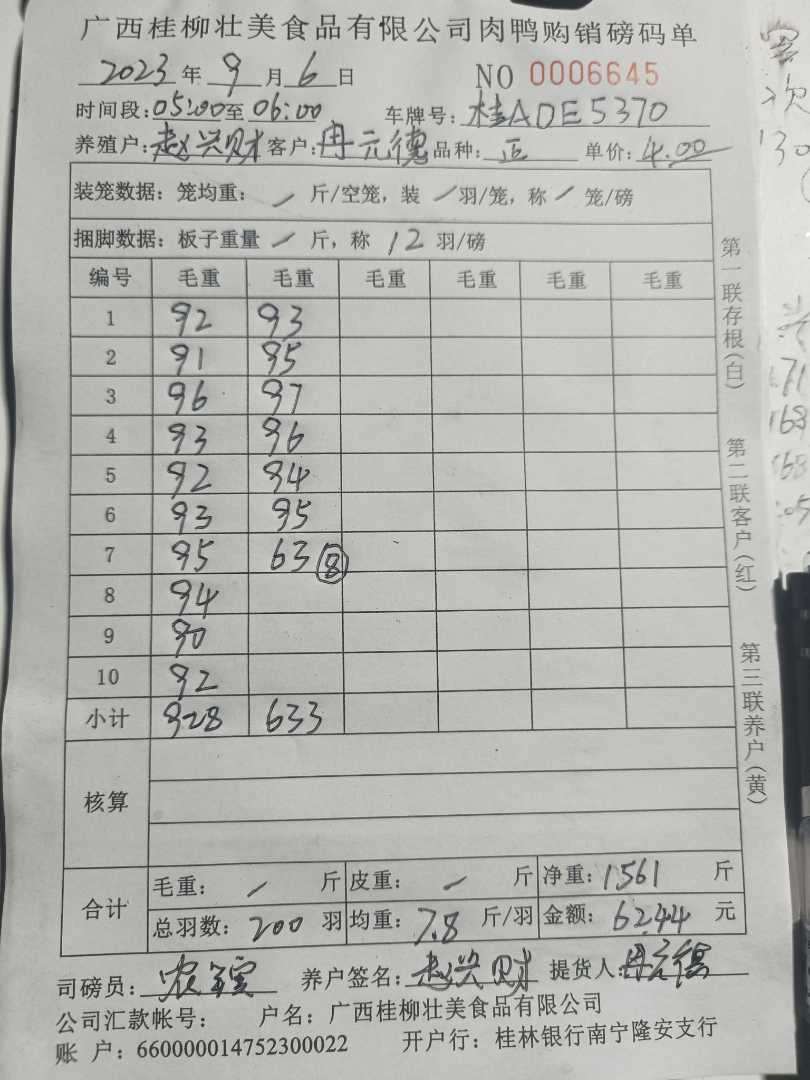 广西桂柳壮美食品有限公司肉鸭购销磅码单
2023年9月6日 NO 0006645
时间段:05:00至06:00 车牌号:桂ADE5370
养殖户:赵兴财 客户:冉元德 品种:正 单价:4.00
装笼数据:笼均重: / 斤/空笼,装 / 羽/笼,称 / 笼/磅
捆脚数据:板子重量 / 斤,称 12 羽/磅
编号 毛重 毛重 毛重 毛重 毛重 毛重
1 92 93
2 91 95
3 96 97
4 93 96
5 92 94
6 93 95
7 95 63 ⑧
8 94
9 90
10 92
小计 928 633
核算
合计
毛重: / 斤 皮重: / 斤 净重:1561 斤
总羽数:200 羽 均重:7.8 斤/羽 金额:6244 元
司磅员: 养户签名:赵兴财 提货人:冉元德
公司汇款帐号: 户名:广西桂柳壮美食品有限公司
账 户:660000014752300022 开户行:桂林银行南宁隆安支行
第一联存根(白)
第二联客户(红)
第三联养户(黄)
次
130
171
168
168